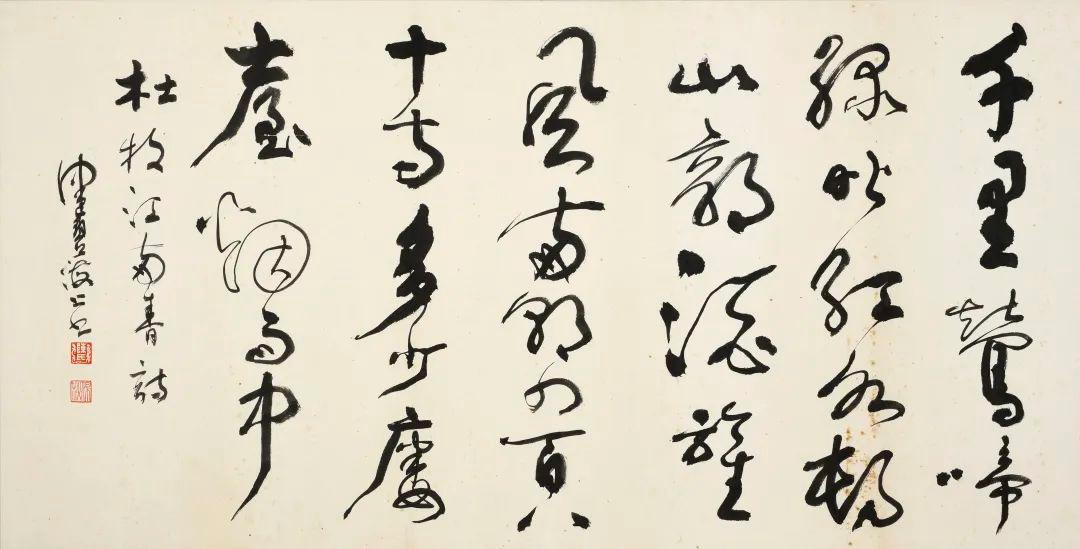 千里鶯啼
綠映紅水村
山郭酒旗
風南朝四百八
十寺多少樓
臺烟雨中
杜牧江南春詩